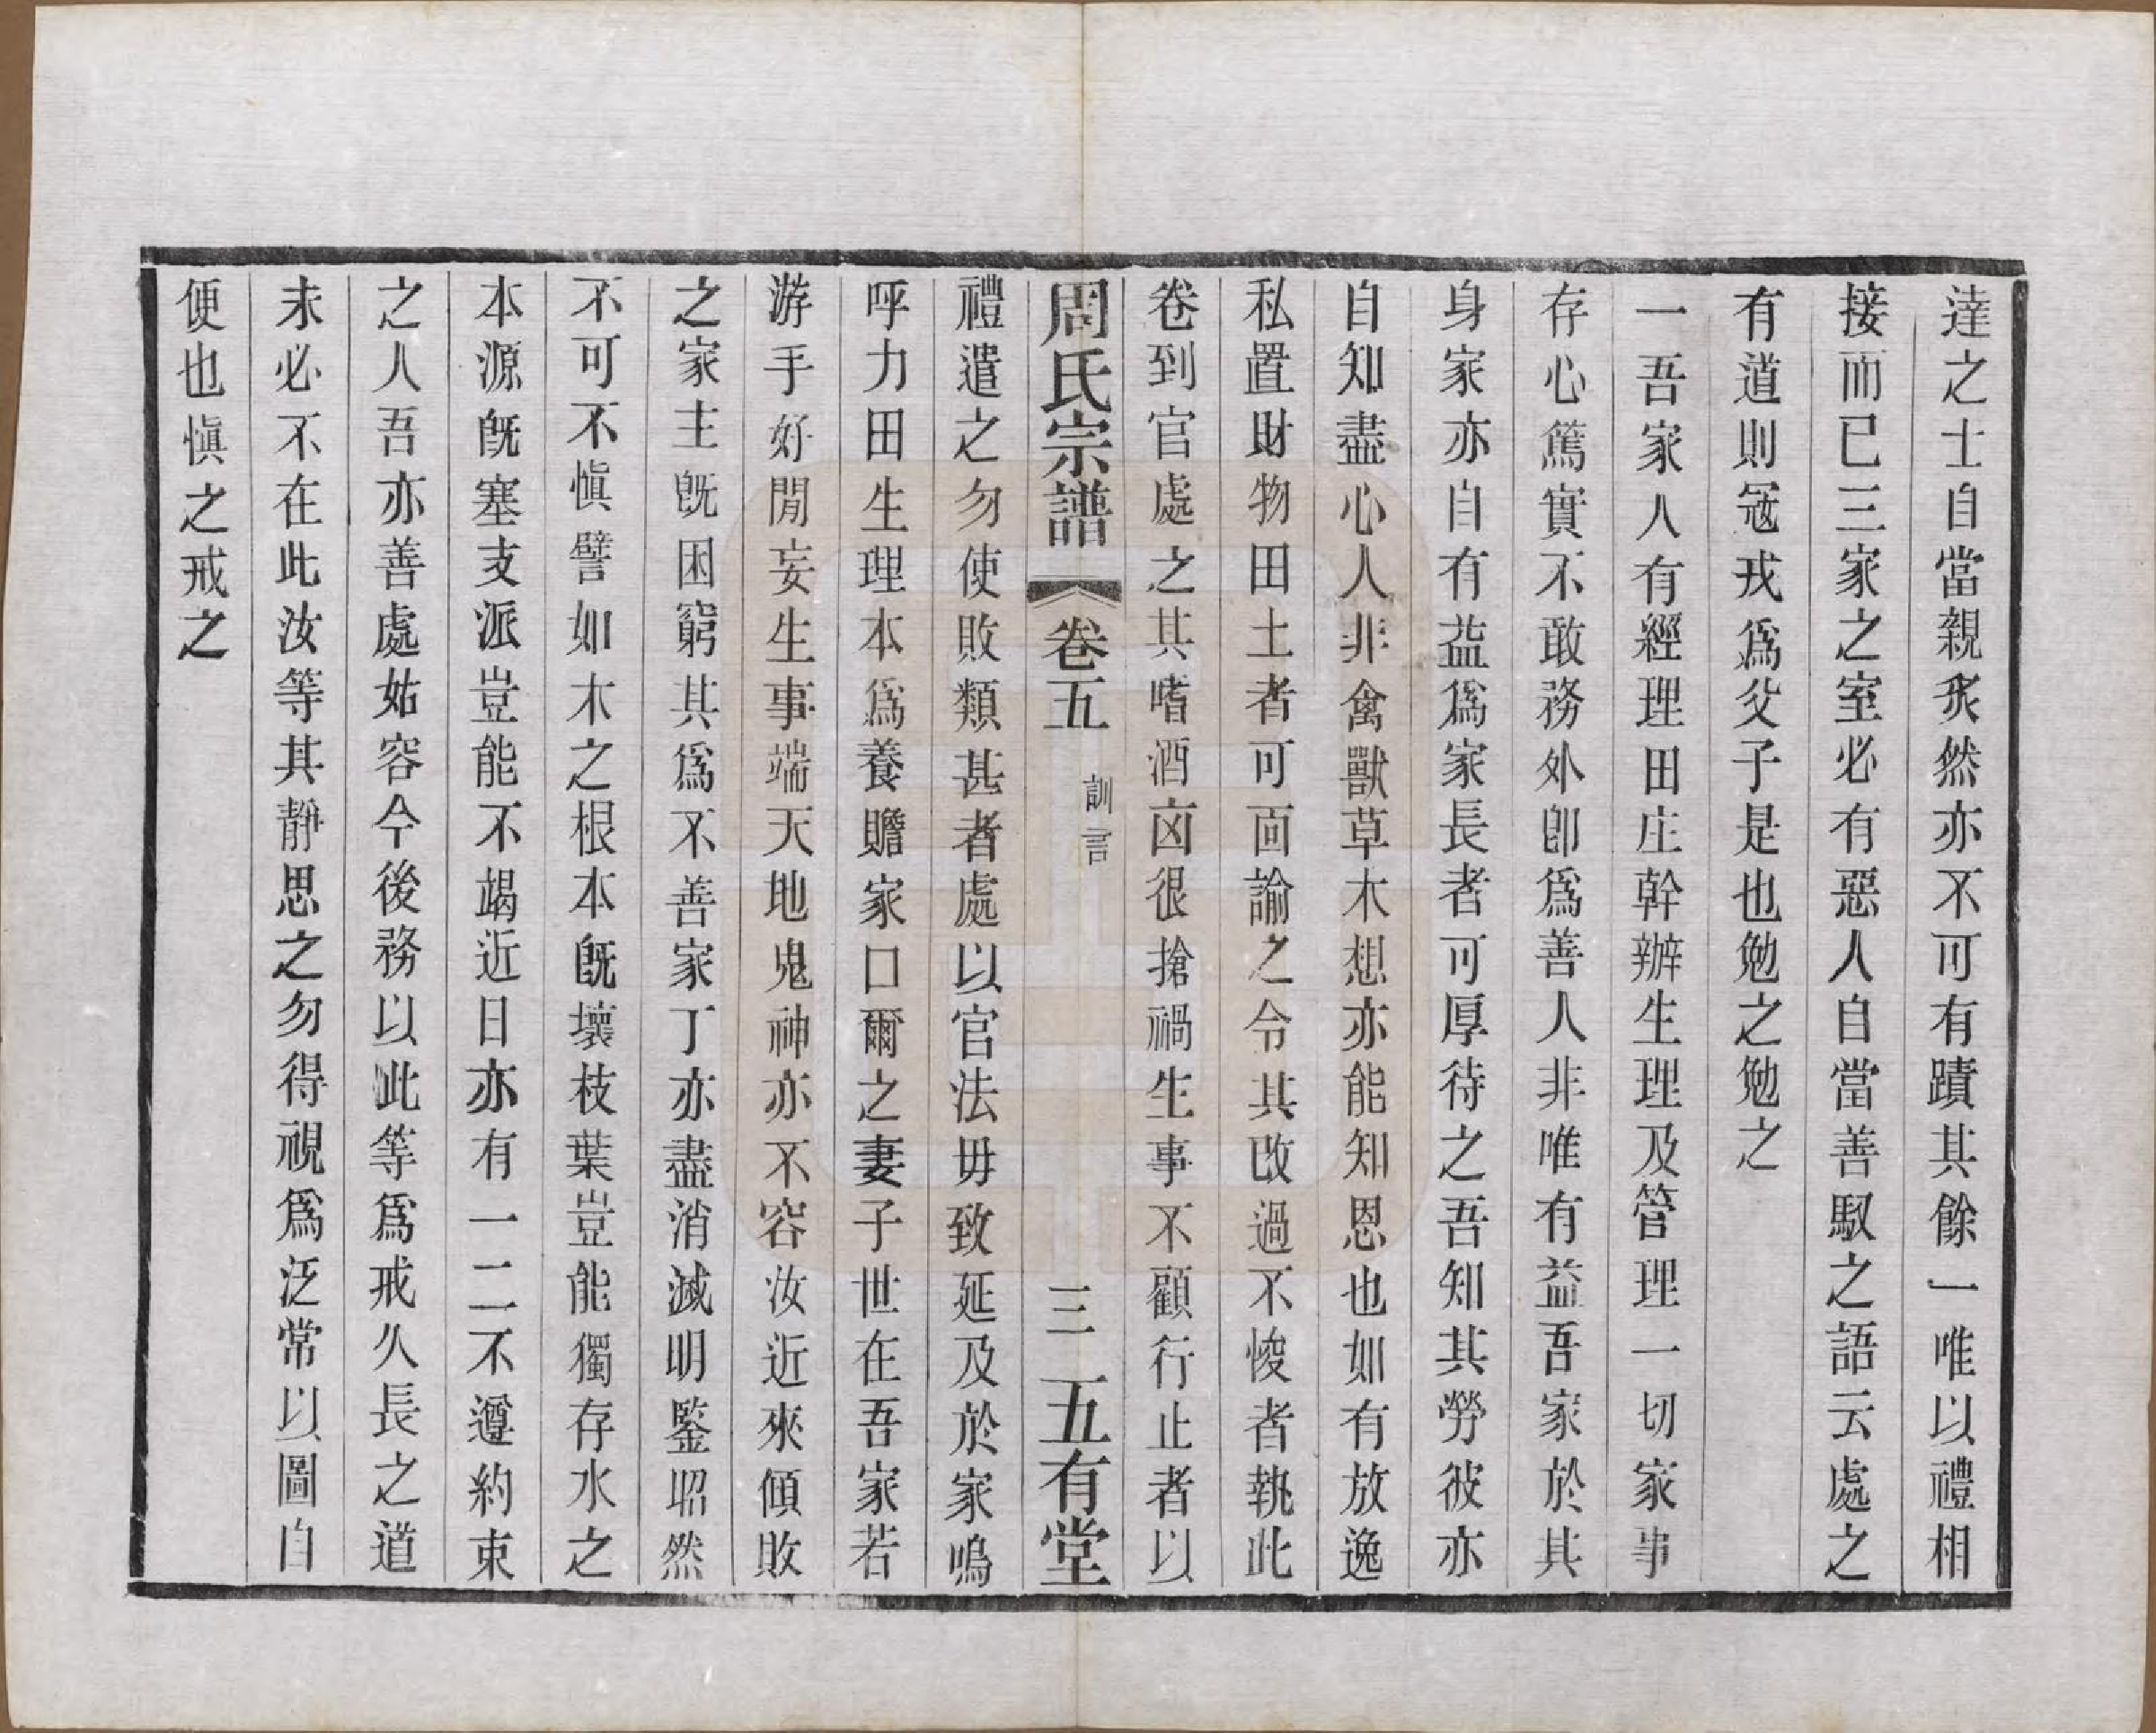 達之士自當親炙然亦不可有蹟其餘一唯以禮相
接而已三家之室必有惡人自當善馭之語云處之
有道則寇戎爲父子是也勉之勉之
一吾家人有經理田庄幹辦生理及管理一切家事
存心篤實不敢務外卽爲善人非唯有益吾家於其
身家亦自有益爲家長者可厚待之吾知其勞彼亦
自知盡心人非禽獸草木想亦能知恩也如有放逸
私置財物田土者可面諭之令其改過不悛者執此
卷到官處之其嗜酒凶很搶禍生事不顧行止者以
周氏宗譜《卷五 訓言 三 五有堂
禮遣之勿使敗類甚者處以官法毋致延及於家嗚
呼力田生理本爲養贍家口爾之妻子世在吾家若
游手好閒妄生事端天地鬼神亦不容汝近來傾敗
之家主旣困窮其爲不善家丁亦盡消滅明鑒昭然
不可不愼譬如木之根本旣壞枝葉豈能獨存水之
本源旣塞支派豈能不竭近日亦有一二不遵約束
之人吾亦善處姑容今後務以此等爲戒久長之道
未必不在此汝等其靜思之勿得視爲泛常以圖自
便也愼之戒之